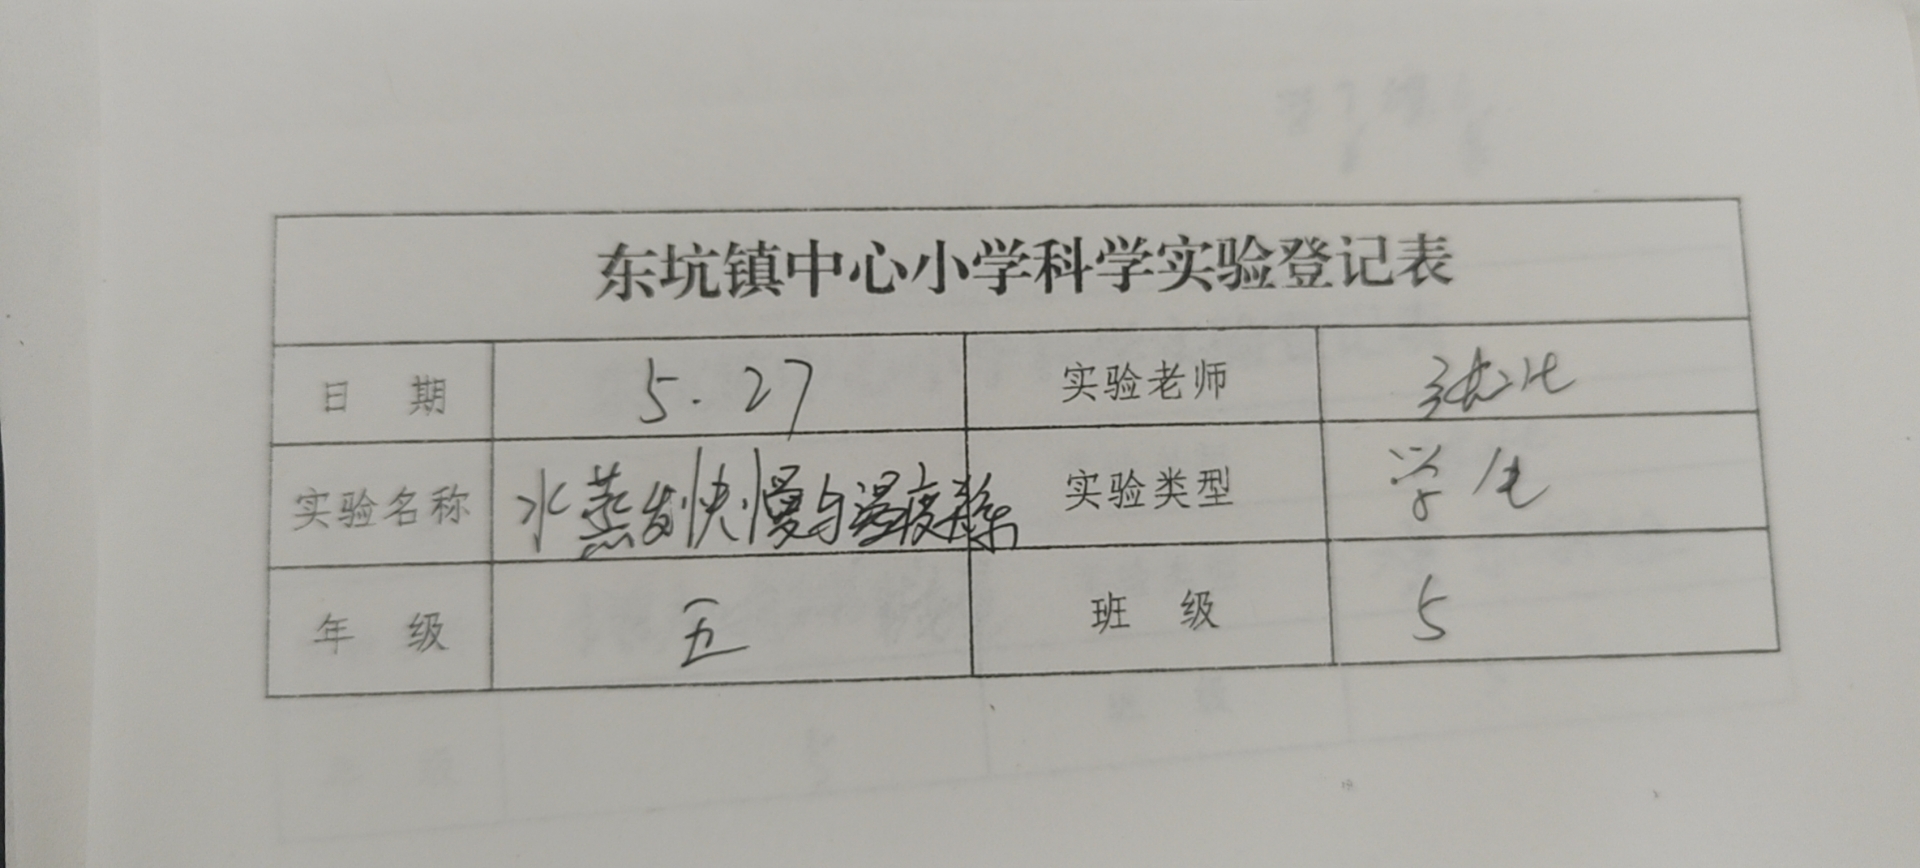 东坑镇中心小学科学实验登记表
日 期 5.27 实验老师 张
实验名称 水蒸发快慢与温度关系 实验类型 学生
年 级 五 班 级 5